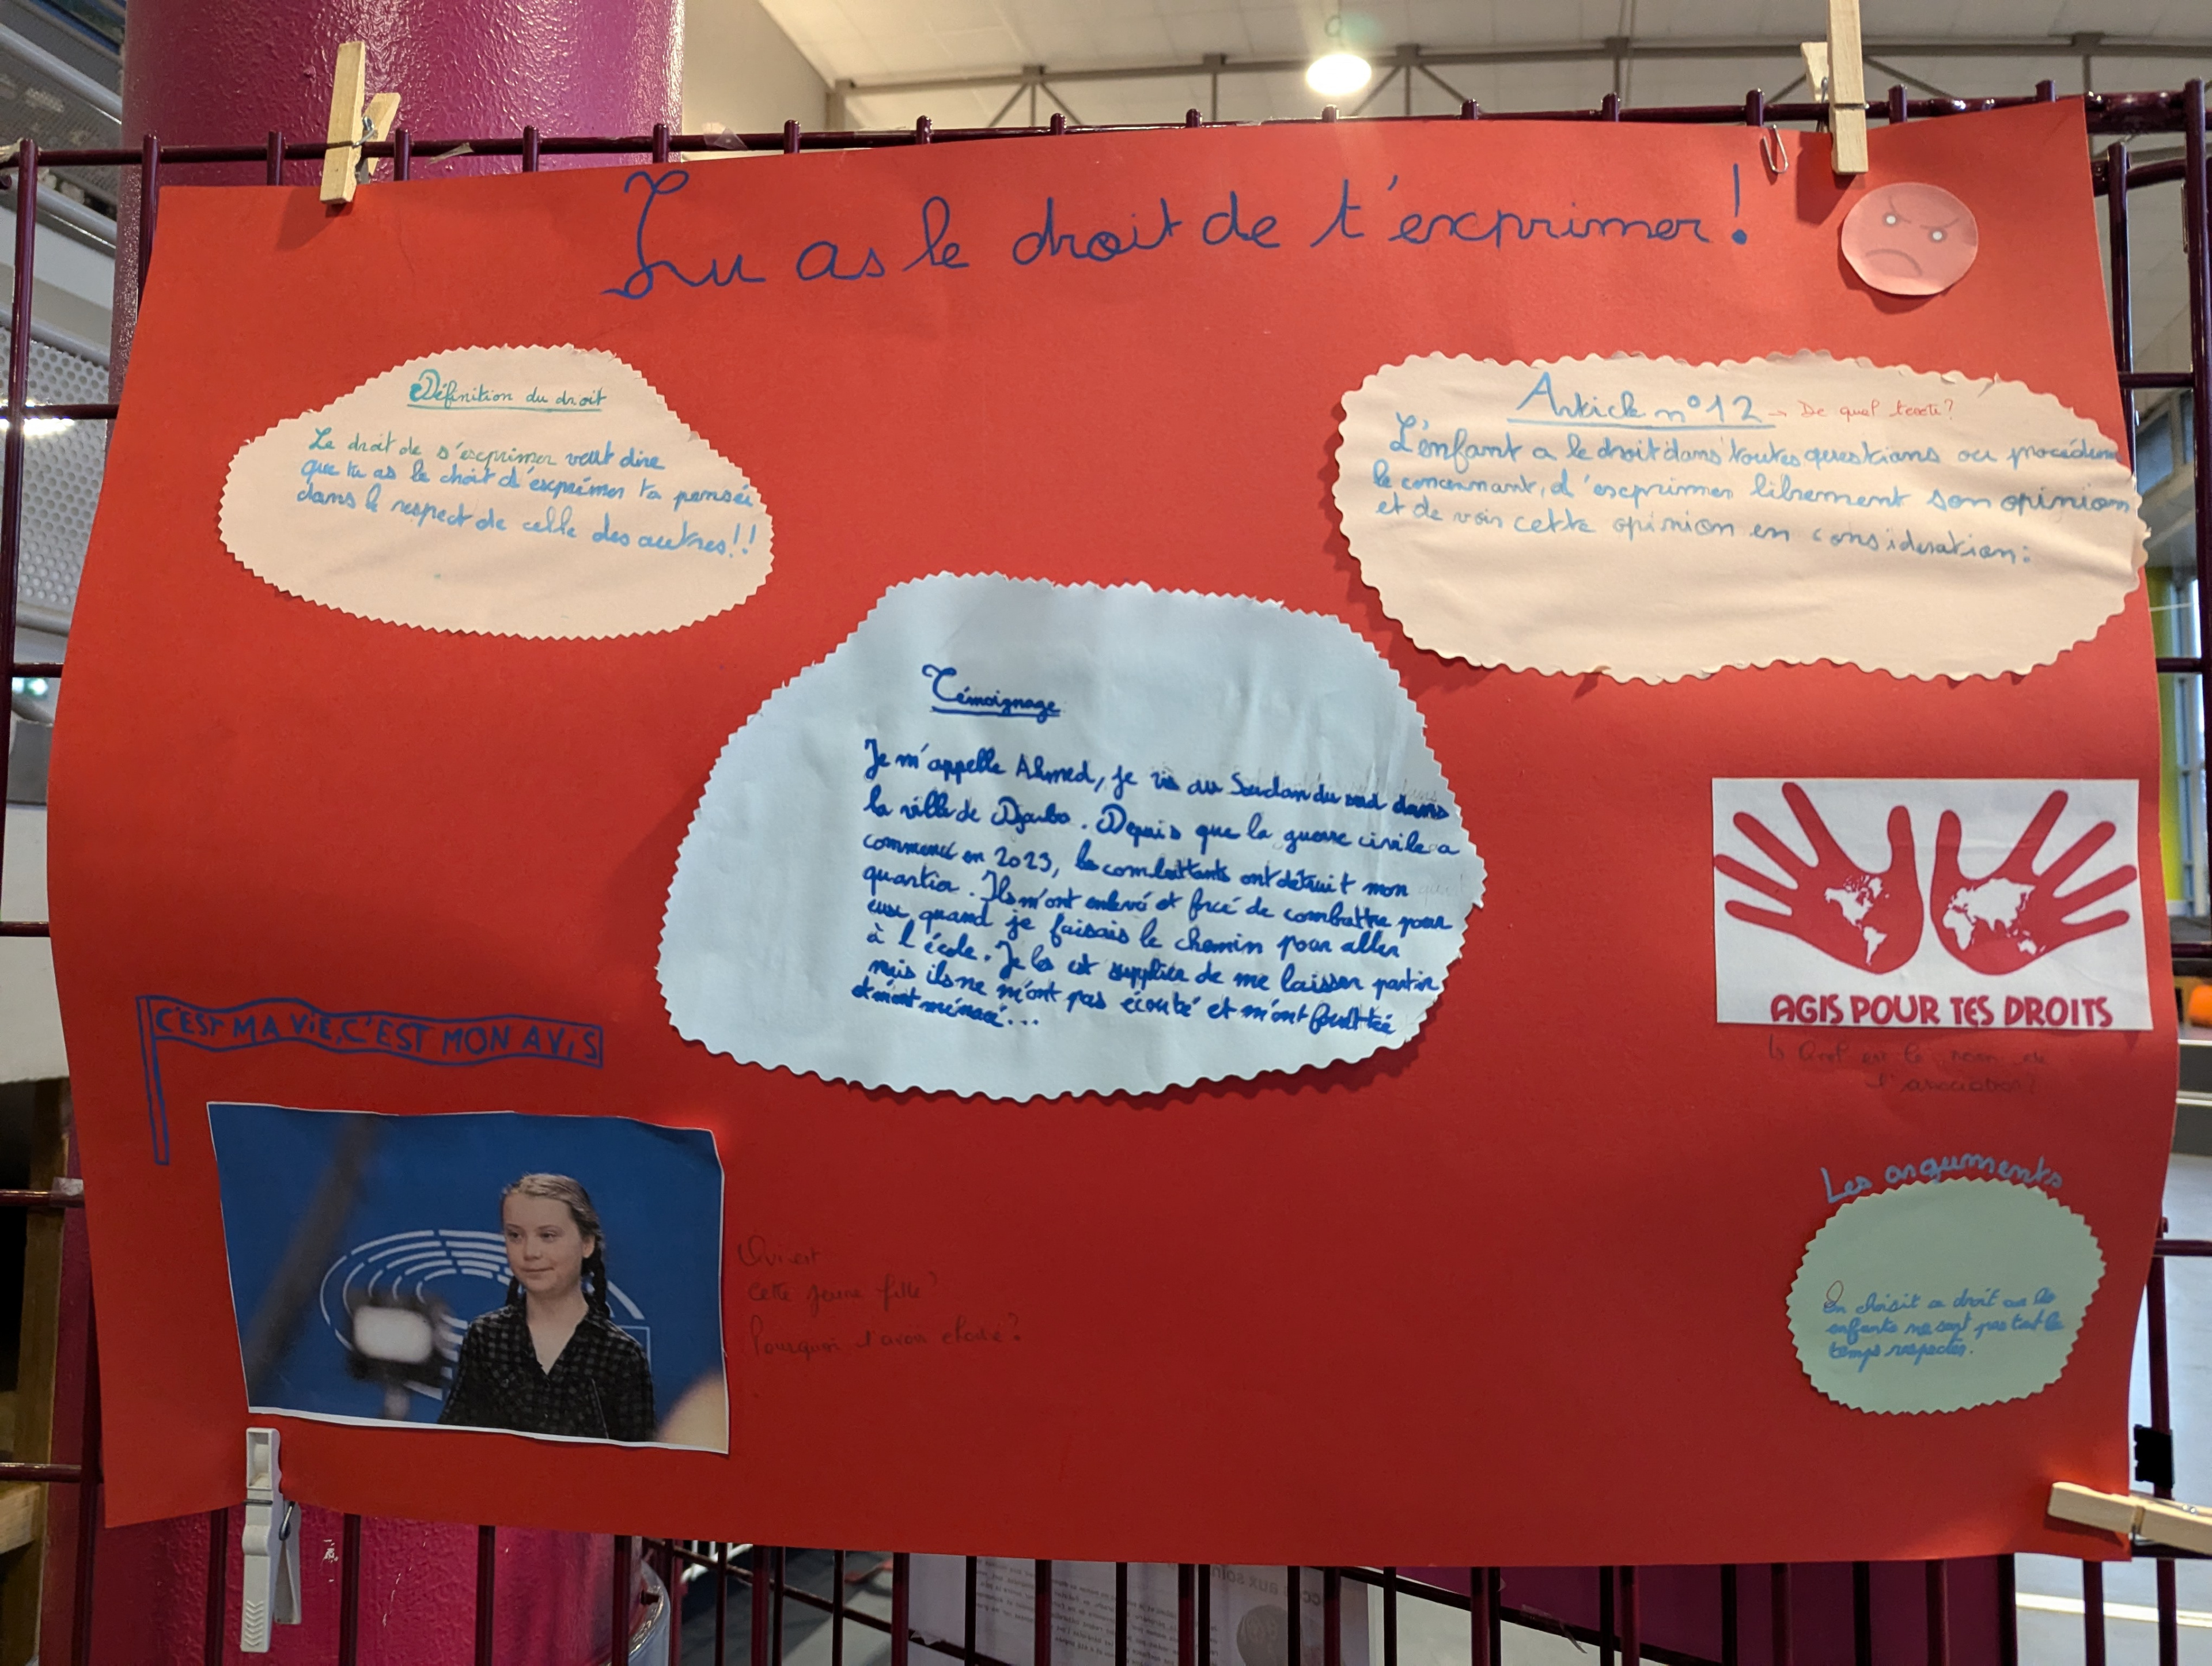 Tu as le droit de t'exprimer !
Définition du droit
Le droit de s'exprimer veut dire
que tu as le droit d'exprimer ta pensée
dans le respect de celle des autres!!
Article n°12 → De quel texte?
L'enfant a le droit dans toutes questions ou procédure
le concernant, d'exprimer librement son opinion
et de voir cette opinion en consideration:
Témoignage
Je m'appelle Ahmed, je vis au Soudan du sud dans
la ville de Djouba. Depuis que la guerre civile a
commencé en 2023, les combattants ont détruit mon
quartier. Ils m'ont enlevé et forcé de combattre pour
eux, quand je faisais le chemin pour aller
à l'école. Je les est supplier de me laisser partir
mais ils ne m'ont pas écouté et m'ont
et m'ont menacé...
AGIS POUR TES DROITS
↳ Quel est le nom de
l'association?
C'EST MA VIE, C'EST MON AVIS
Qui est
cette jeune fille?
Pourquoi l'avoir choisie?
Les arguments
On choisit ce droit car les
enfants ne sont pas tout le
temps respecter.